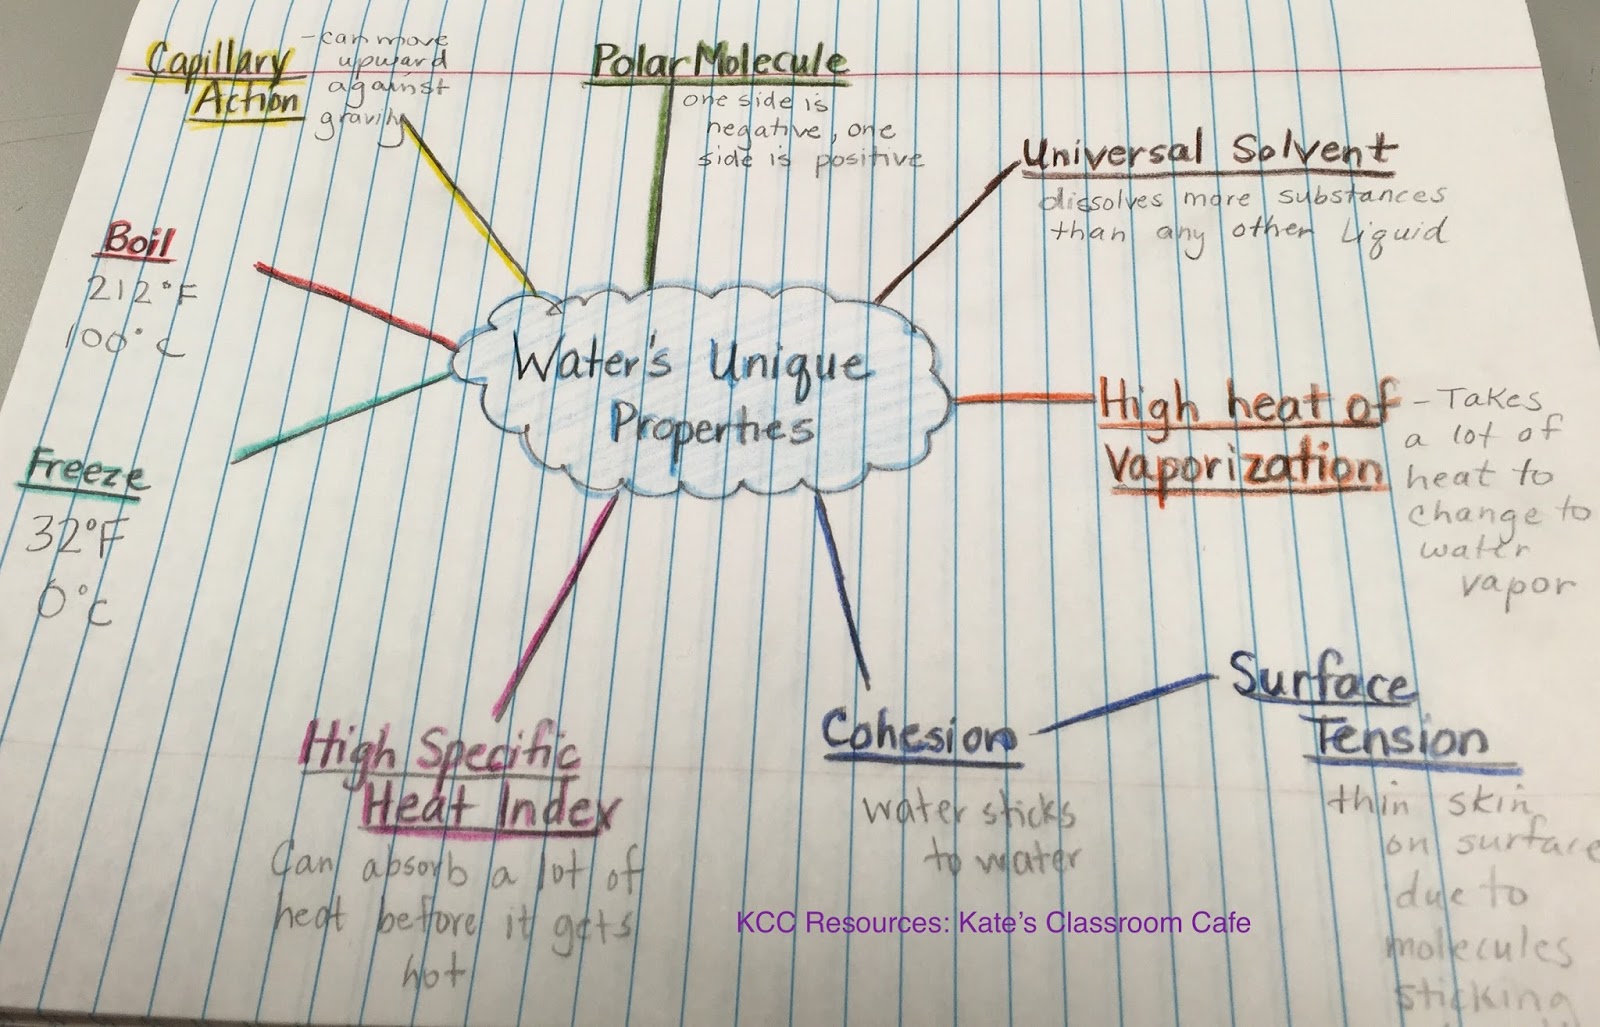 Capillary
Action
- can move
upward
against
gravity
Polar Molecule
one side is
negative, one
side is positive
Universal Solvent
dissolves more substances
than any other liquid
Boil
212°F
100°C
Water's Unique
Properties
High heat of
Vaporization
- Takes
a lot of
heat to
change to
water
vapor
Freeze
32°F
0°C
High Specific
Heat Index
Can absorb a lot of
heat before it gets
hot
Cohesion
water sticks
to water
Surface
Tension
thin skin
on surface
due to
molecules
sticking
KCC Resources: Kate's Classroom Cafe